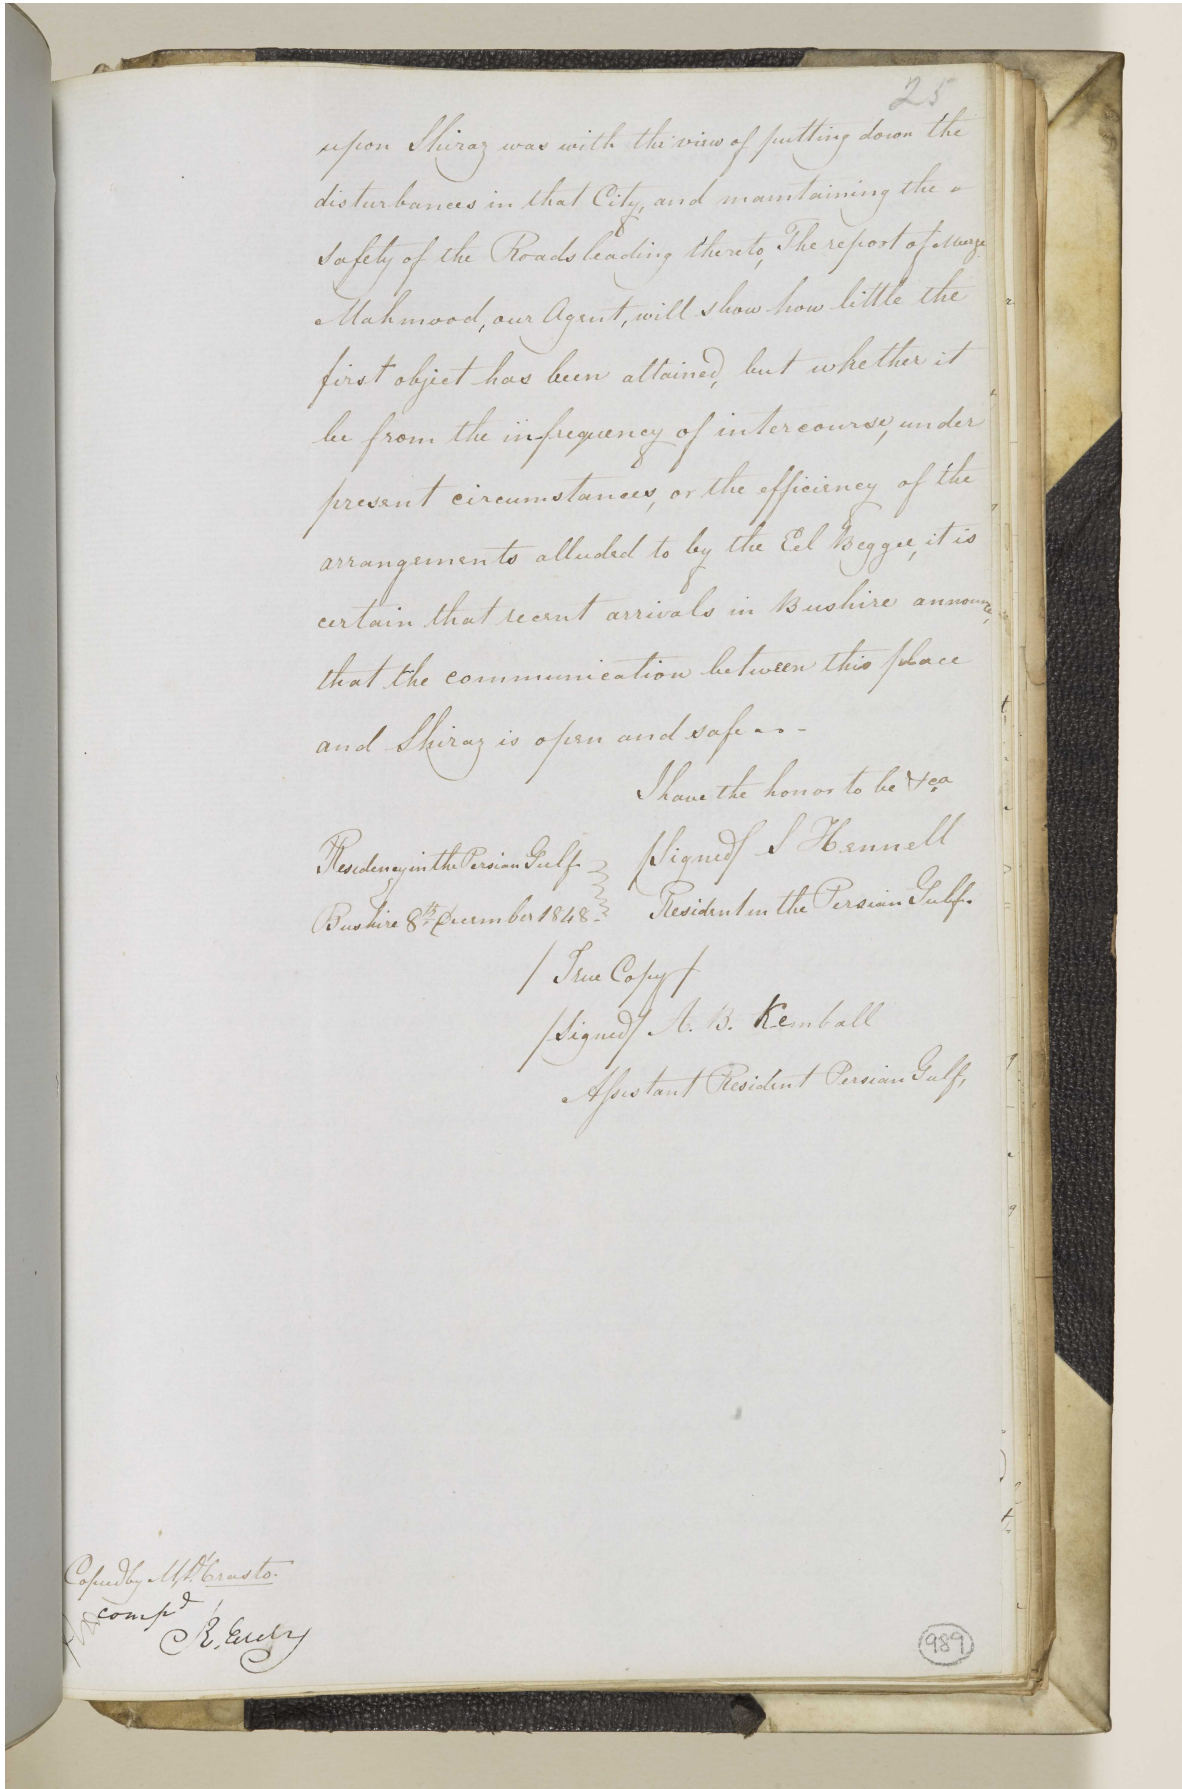 25
upon Shiraz was with the view of putting down the
disturbances in that City, and maintaining the -
safety of the Roads leading thereto, The report of Meerza
Mahmood, our Agent, will show how little the
first object has been attained, but whether it
be from the infrequency of intercourse, under
present circumstances, or the efficiency of the
arrangements alluded to by the Eel Beggee, it is
certain that recent arrivals in Bushire announce,
that the communication between this place
and Shiraz is open and safe - . -
I have the honor to be &ca
/Signed/ S Hennell
Residency in the Persian Gulf
Resident in the Persian Gulf.
Bushire 8th December 1848.
/ True Copy /
/Signed/ A. B. Kemball
Assistant Resident Persian Gulf,
Copied by M, D'Crasto.
compd
989